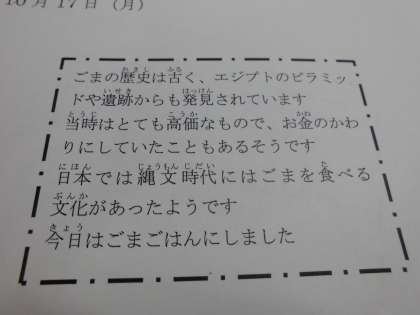 10月17日（月）
ごまの歴史は古く、エジプトのピラミッ
ドや遺跡からも発見されています
当時はとても高価なもので、お金のかわ
りにしていたこともあるそうです
日本では縄文時代にはごまを食べる
文化があったようです
今日はごまごはんにしました